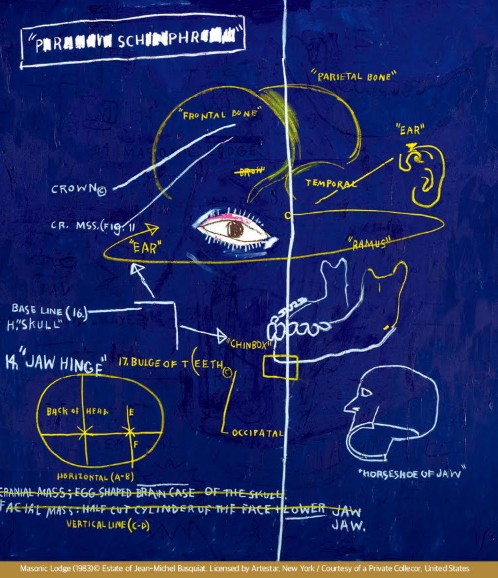 "PARANOIA SCHIZOPHRENIA"
"PARIETAL BONE"
"FRONTAL BONE"
"EAR"
BROW
TEMPORAL
CROWN©
CR. MSS.(FIG. 1)
"EAR"
"RAMUS"
BASE LINE (16.)
H."SKULL"
"CHINBOX"
14."JAW HINGE"
17. BULGE OF TEETH©
BACK OF HEAD
E
F
OCCIPATAL
HORIZONTAL (A-B)
"HORSESHOE OF JAW"
CRANIAL MASS; EGG SHAPED BRAIN CASE OF THE SKULL.
FACIAL MASS: HALF CUT CYLINDER OF THE FACE + LOWER JAW
JAW.
VERTICAL LINE (C-D)
Masonic Lodge (1983)© Estate of Jean-Michel Basquiat. Licensed by Artestar, New York / Courtesy of a Private Collecor, United States